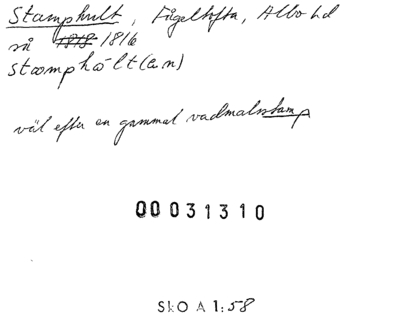 Stamphult, Fågeltofta, Albo hd
så 1818 1816
stɑmphólt(en)
väl efter en gammal vadmalsstamp
00 031310
SkO A 1:58